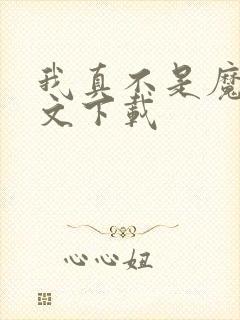 我真不是魔
文下载
心心妞